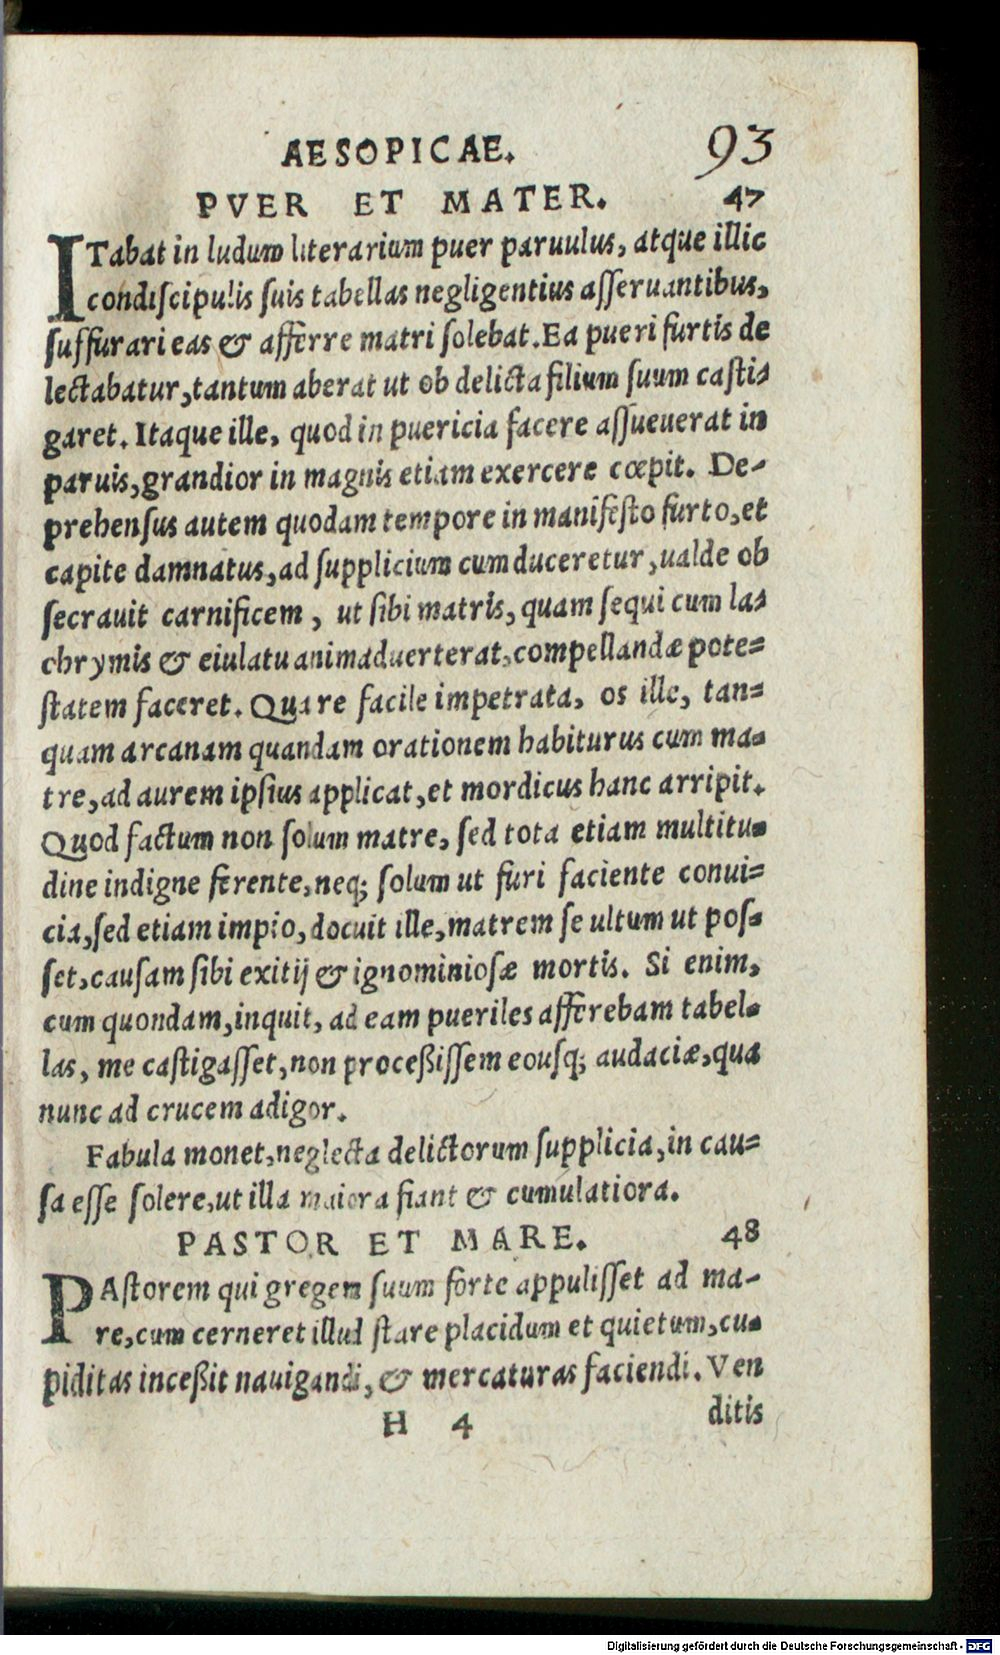 AESOPICAE. 93
PVER ET MATER. 47
ITabat in ludum literarium puer paruulus, atque illic
condiscipulis suis tabellas negligentius asseruantibus,
suffurari eas & afferre matri solebat. Ea pueri furtis de
lectabatur, tantum aberat ut ob delicta filium suum casti-
garet. Itaque ille, quod in puericia facere assueuerat in
paruis, grandior in magnis etiam exercere cœpit. De-
prehensus autem quodam tempore in manifesto furto, et
capite damnatus, ad supplicium cum duceretur, ualde ob
secrauit carnificem, ut sibi matris, quam sequi cum la-
chrymis & eiulatu animaduerterat, compellandæ pote=
statem faceret. Quare facile impetrata, os ille, tan=
quam arcanam quandam orationem habiturus cum ma-
tre, ad aurem ipsius applicat, et mordicus hanc arripit.
Quod factum non solum matre, sed tota etiam multitu-
dine indigne ferente, neq; solum ut furi faciente conui=
cia, sed etiam impio, docuit ille, matrem se ultum ut pos-
set, causam sibi exitij & ignominiosæ mortis. Si enim,
cum quondam, inquit, ad eam pueriles afferebam tabel-
las, me castigasset, non proceßissem eousq; audaciæ, qua
nunc ad crucem adigor.
Fabula monet, neglecta delictorum supplicia, in cau=
sa esse solere, ut illa maiora fiant & cumulatiora.
PASTOR ET MARE. 48
PAstorem qui gregem suum forte appulisset ad ma-
re, cum cerneret illud stare placidum et quietum, cu-
piditas inceßit nauigandi, & mercaturas faciendi. Ven
H 4 ditis
Digitalisierung gefördert durch die Deutsche Forschungsgemeinschaft - DFG